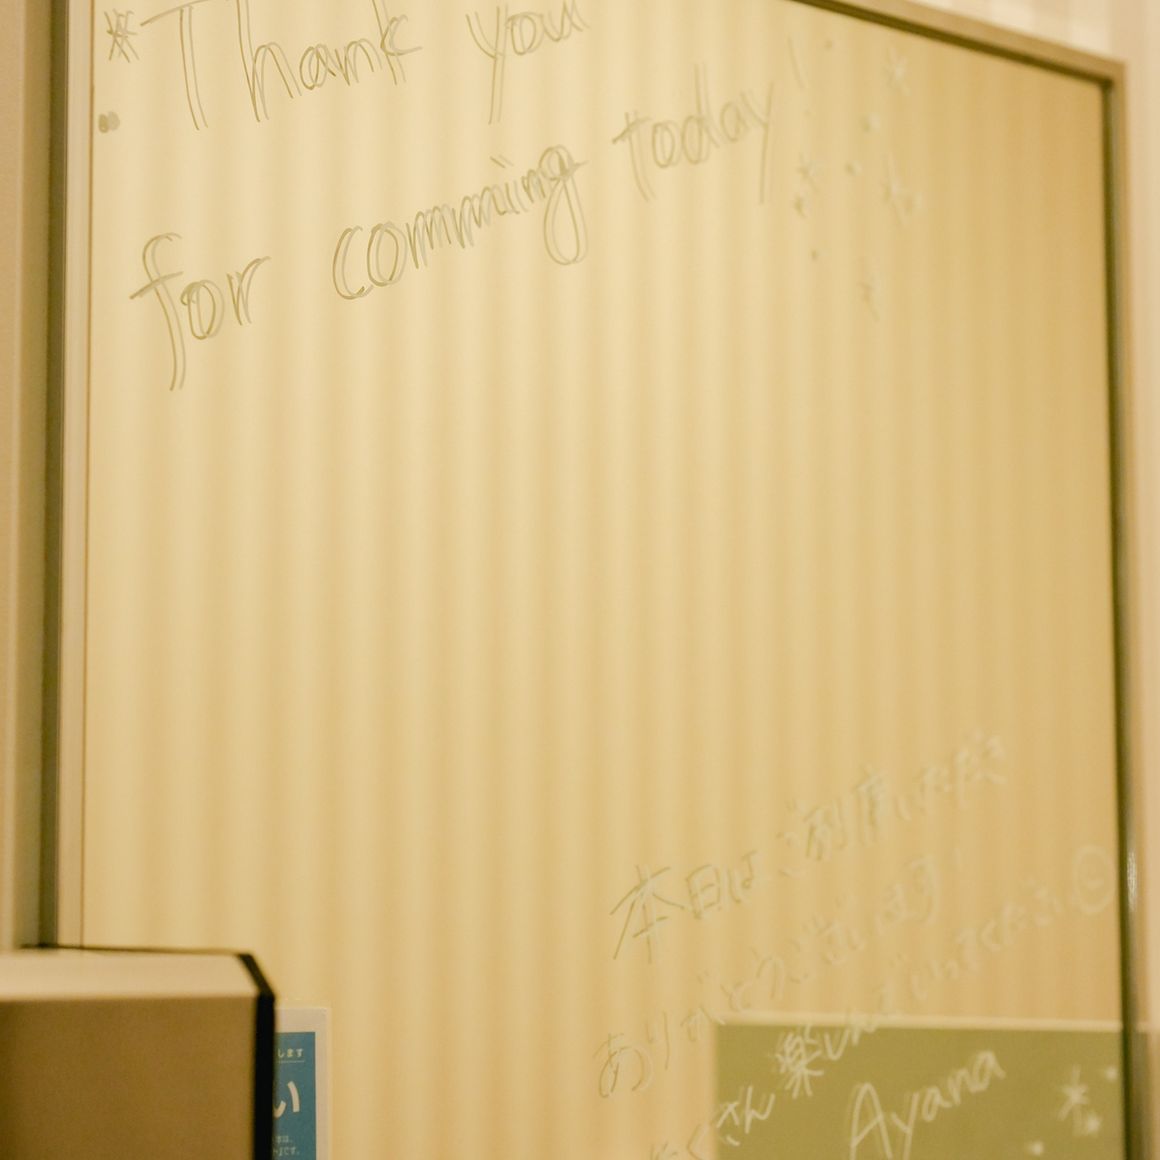 Thank you
for comming today!
本日はご列席いただき
ありがとうございます!
たくさん楽しんでいってください
Ayana
します
い